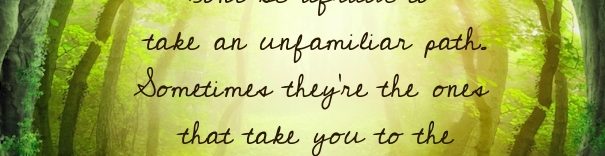 don't be afraid to
take an unfamiliar path.
Sometimes they're the ones
that take you to the